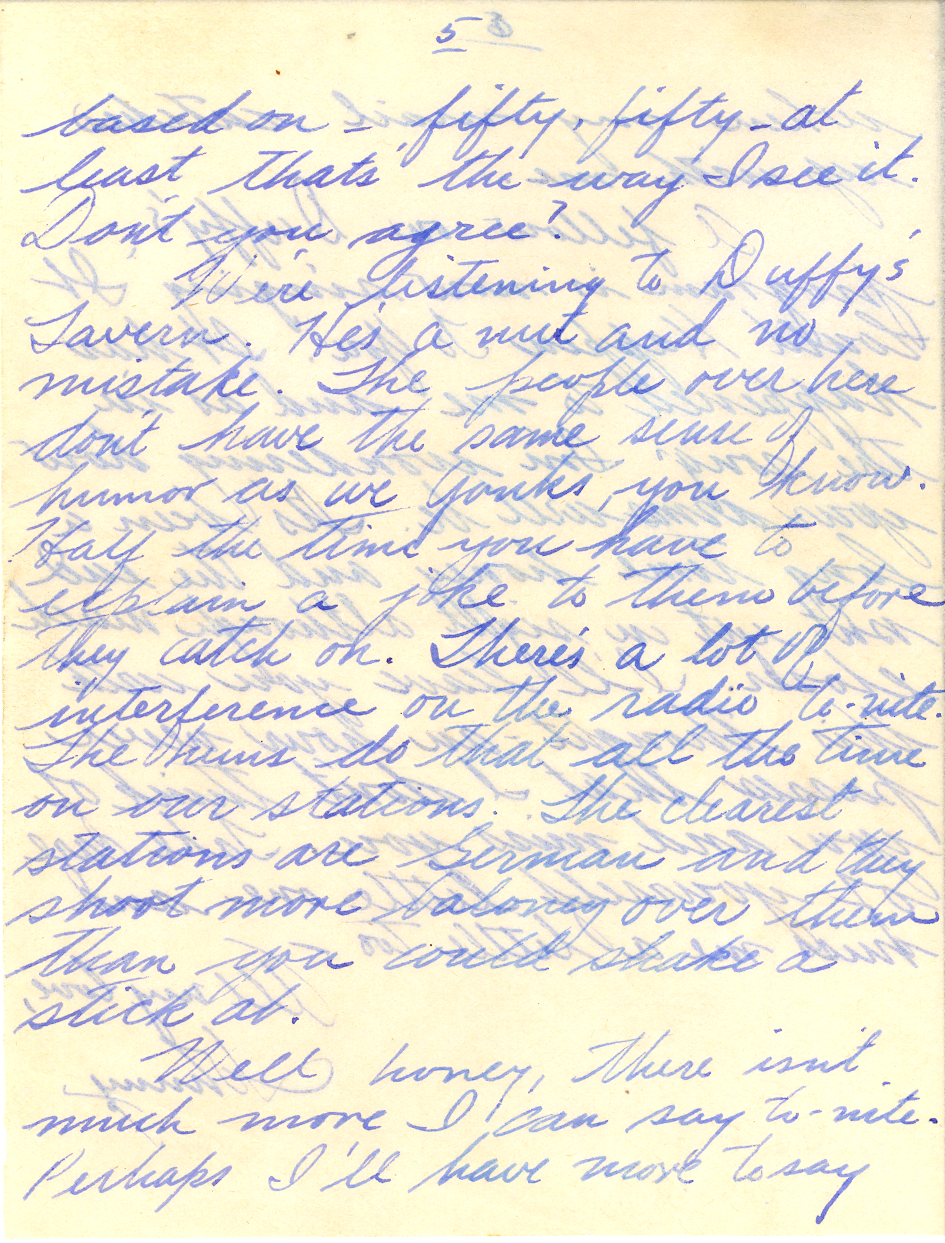 5
based on - fifty, fifty - at
least thats' the way I see it.
Don't you agree?
We're listening to Duffy's
Tavern. He's a nut and no
mistake. The people over here
don't have the same sense of
humor as we Yanks, you know.
Half the time you have to
explain a joke to them before
they catch on. There's a lot of
interference on the radio to-nite.
The Huns do that all the time
on our stations. The clearest
stations are German and they
shoot more baloney over them
than you could shake a
stick at.
Well honey, there isn't
much more I can say to-nite.
Perhaps I'll have more to say